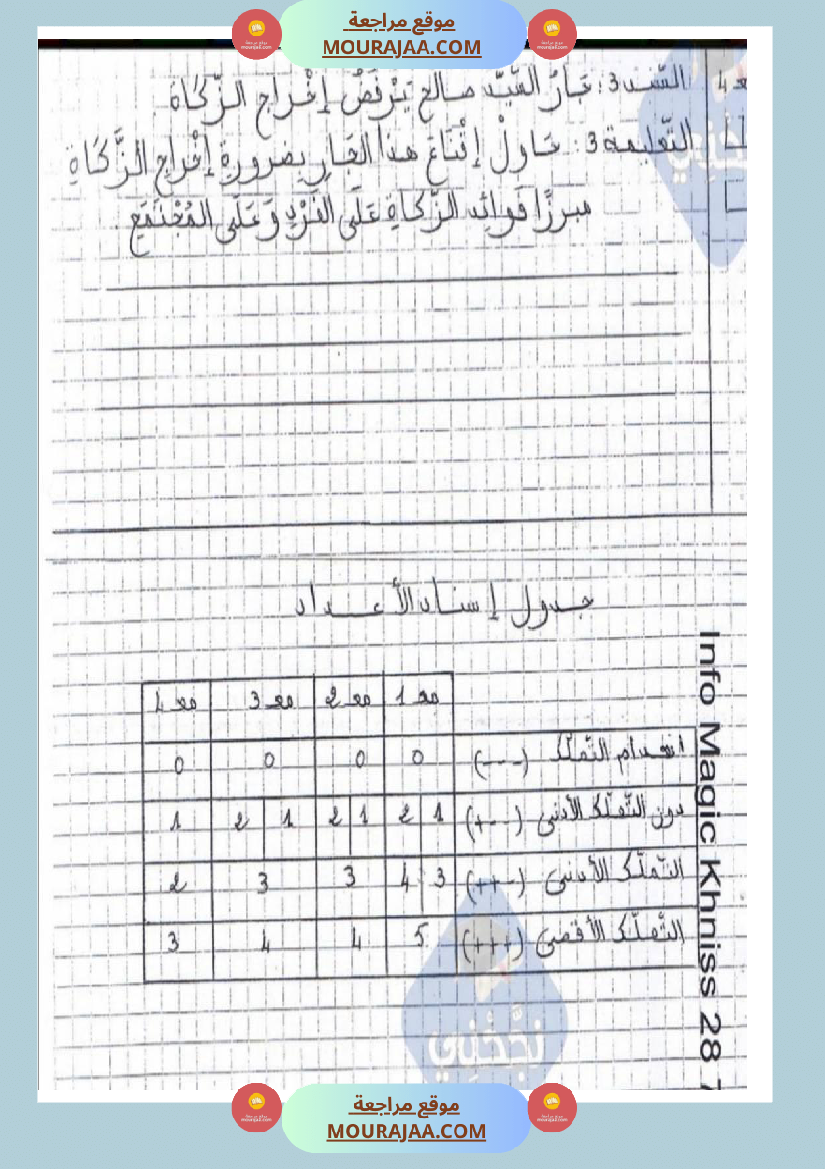 موقع مراجعة
MOURAJAA.COM
مع 4
السّند 3: جَارُ السَّيِّد صالح يَرْفُضُ إخْراج الزّكَاة
التّعليمة 3: حَاولْ إقْنَاعَ هذا الجَارِ بضرورةِ إخْراجِ الزَّكَاةِ
مبرزًا فوائد الزّكاةِ عَلَى الفَرْدِ وَعَلَى المُجْتَمَعِ.
جدول إسناد الأعداد
مع 1 مع 2 مع 3 مع 4
انعدام التّملّك (---) 0 0 0 0
دون التّملّك الأدنى (+--) 1 2 1 2 1 2 1
التّملّك الأدنى (++-) 3 4 3 3 2
التّملّك الأقصى (+++) 5 4 4 3
Info Magic Khniss 28 7
نجّحني
موقع مراجعة
MOURAJAA.COM